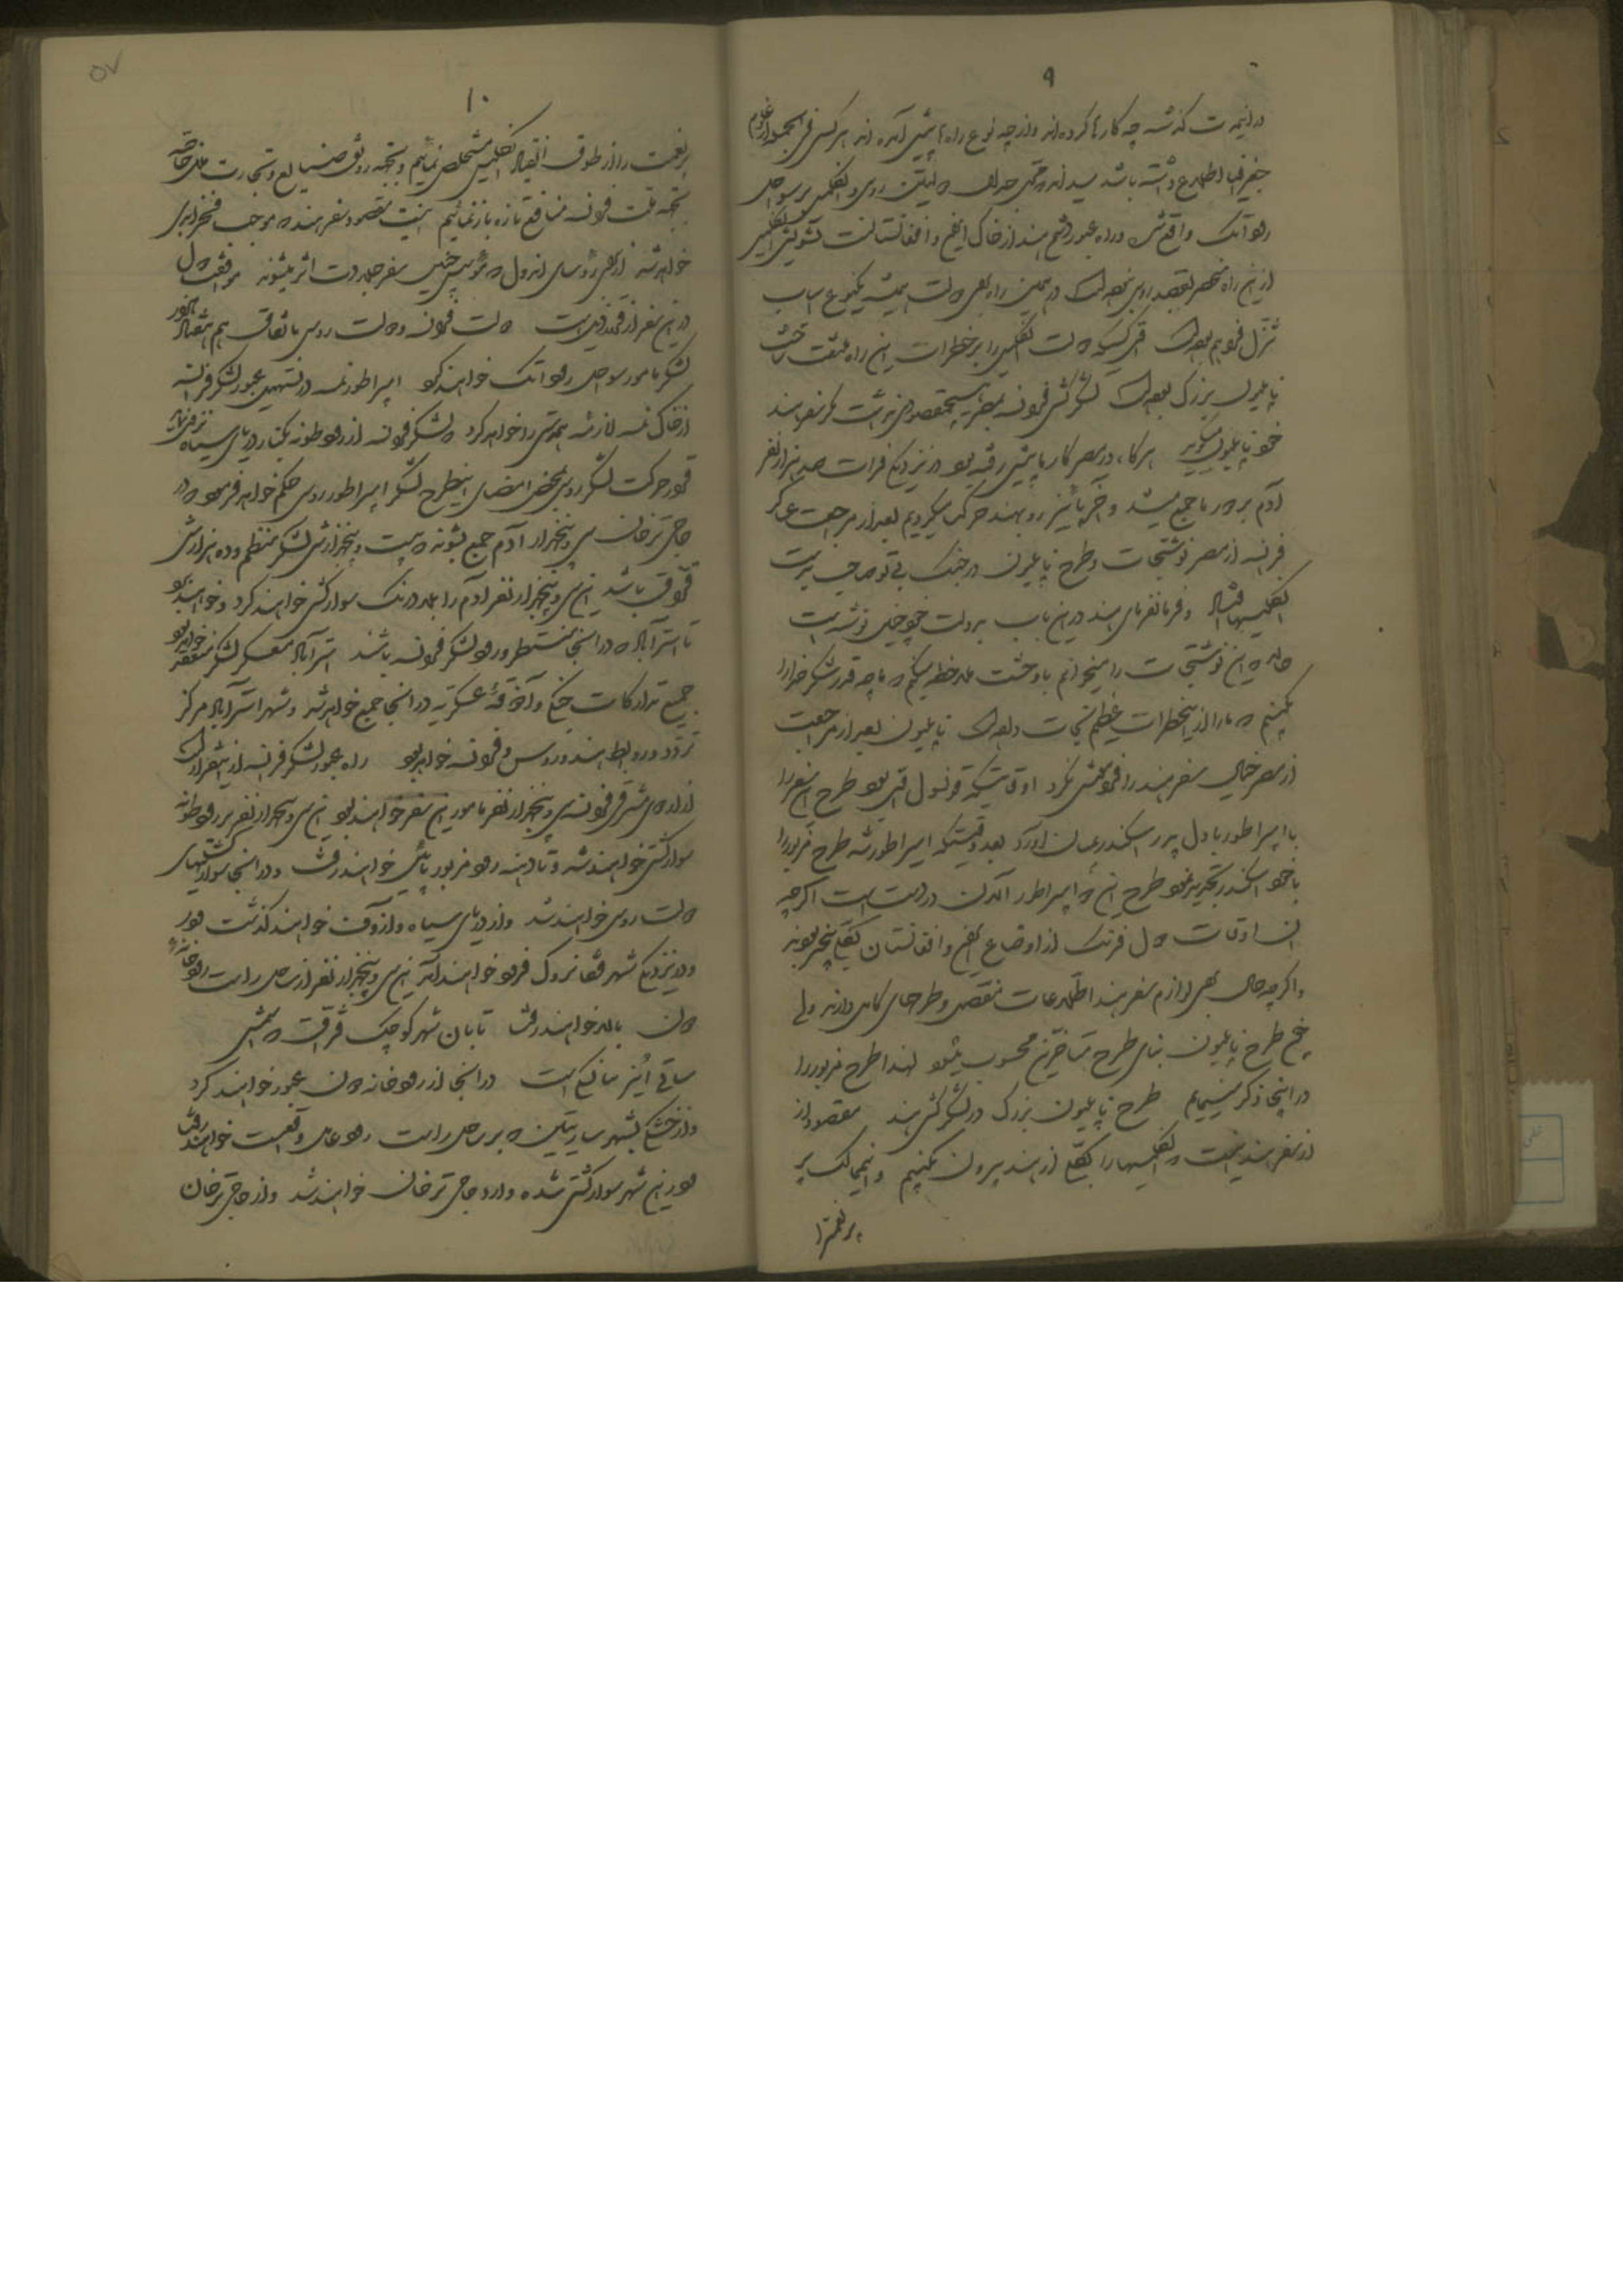 ۹
در اینمدت گذشته چه کارها کرده‌اند و از چه نوع راه‌ها پیش آمده‌اند هر کس فی‌الجمله از علوم
جغرافیا اطلاع داشته باشد میداند که محل جدال دولتین روس و انگلیس بر سواحل
رود آتک واقع و راه عبور دشمن هند از خاک ایران و افغانستانست تشویش انگلیس
از این راه منحصر بقصد روس نبوده است در همین راه بعضی دولت همیشه یکنوع اسباب
تزلزل فراهم بوده است کسیکه دولت انگلیس را بر خطرات این راه ملتفت ساخت
ناپلیون بزرگ بوده است لشکرکشی فرانسه بمصر هیچ مقصودی نداشت مگر سفر هند
خود ناپلیون میگوید هرگاه در مصر کار ما پیش رفته بود در نزدیکی فرات صد هزار نفر
آدم بدور ما جمع میشد و آخر پائیز رو بهند حرکت میکردیم بعد از مراجعت عساکر
فرانسه از مصر نوشتجات و طرح ناپلیون در جنگ بدست
انگلیسها افتاد و فرمانفرمای هند در این باب بدولت خود چنین نوشته است
حال که این نوشتجات را میخوانم با وحشت ملاحظه میکنم که ما چه قدر شکر خدا را
بکنیم که ما را از این خطرات عظیم نجات داده است ناپلیون بعد از مراجعت
از مصر خیال سفر هند را فراموش نکرد اوقاتیکه قونسول بود طرح این سفر را
با امپراطور پاول پدر اسکندر بمیان آورد بعد وقتیکه امپراطور شد طرح مزبور را
با خود اسکندر تجدید نمود طرح این دو امپراطور الان در دست است اگرچه
آن اوقات دول فرنگ از اوضاع ایران و افغانستان بکلی بیخبر بودند
و اگرچه حال بجهت لوازم سفر هند اطلاعات مفصل و طرحهای کامل دارند ولی
طرح ناپلیون بنای طرح متأخرین محسوب میشود لهذا طرح مزبور را
در اینجا ذکر مینمایم طرح ناپلیون بزرگ در لشکرکشی هند مقصود از
از سفر هند اینست که انگلیسها را بکلی از هند بیرون بکنیم و اینممالک پر
پر نعمت را
۱۰
پر نعمت را از طوق انقیاد انگلیس مستخلص نمائیم و بجهة رونق صنایع و تجارت ملل خاصه
بجهة ملت فرانسه منافع تازه باز نمائیم اینست مقصود سفر هند که موجب فخر ابدی
خواهد شد از برای رؤسای اندول که مؤسس چنین سفر جلادت اثر میشوند موافقت دول
در این سفر از قرار ذیل است دولت فرانسه و دولت روس باتفاق هم هفتاد هزار
لشکر مامور سواحل رود آتک خواهند کرد امپراطور نمسه در تسهیل عبور لشکر فرانسه
از خاک نمسه لازمه همراهی را خواهد کرد که لشکر فرانسه از رود طونه بکنار دریای سیاه نزول نماید
در حرکت لشکر روس بمحض امضای اینطرح لشکر امپراطور روس حکم خواهد فرمود که در
حاجی ترخان سی و پنجهزار آدم جمع بشوند که بیست و پنجهزارش لشکر منظم و ده هزارش
قزاق باشد این سی و پنجهزار نفر آدم را بلادرنگ سوار کشتی خواهند کرد و خواهند برد
تا استرآباد که در آنجا منتظر ورود لشکر فرانسه باشند استرآباد معسکر لشکر متفقه خواهد بود
جمیع تدارکات جنگی و آذوقهٔ عسکریه در آنجا جمع خواهد شد و شهر استرآباد مرکز
تردد و روابط هند و روس و فرانسه خواهد بود راه عبور لشکر فرانسه از اینقرار است
از اردوی فرانسه سی و پنجهزار نفر مامور این سفر خواهند بود این سی و پنجهزار نفر بر رود طونه
سوار کشتی خواهند شد و تا دهنه رود مزبور پائین خواهند رفت و در آنجا سوار کشتیهای
دولت روس خواهند شد و از دریای سیاه و ازوف خواهند گذشت
و در نزدیکی شهر فرود خواهند آمد این سی و پنجهزار نفر از ساحل راست رودخانه
دن بالا خواهند رفت تا بان شهر کوچک قزاقیه که اسمش
است در آنجا از رودخانه دن عبور خواهند کرد
و از خشکی بشهر ساریتسین که بر ساحل راست رود واقعست خواهند رفت
در این شهر سوار کشتی شده وارد حاجی ترخان خواهند شد و از حاجی ترخان